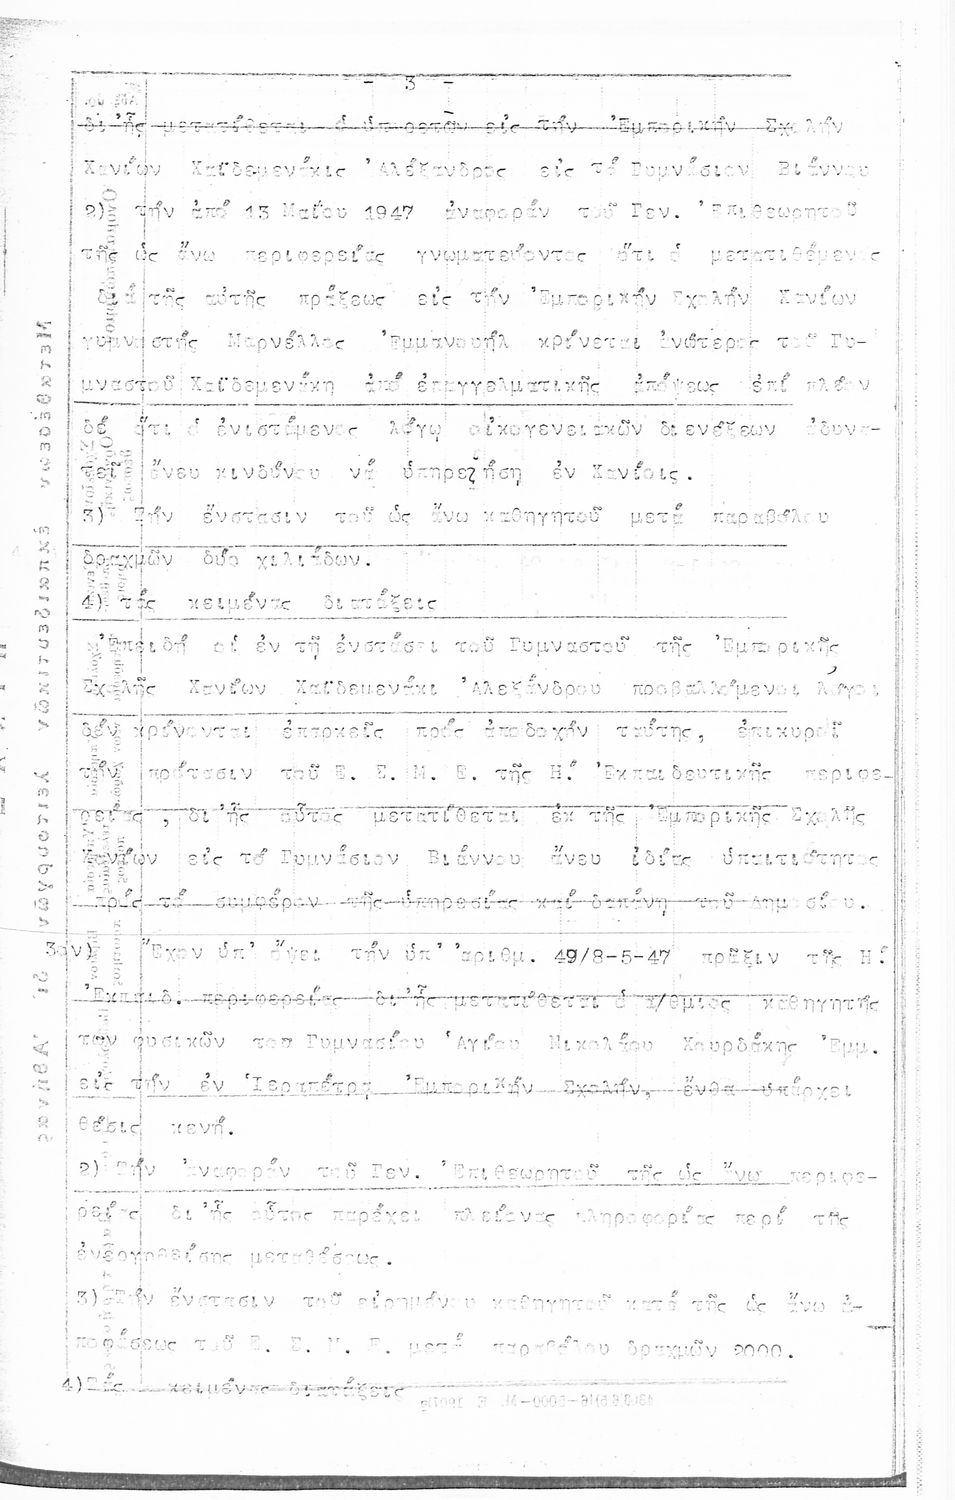 - 3 -
δι'ἧς μετατίθεται ὁ ὑπηρετῶν εἰς τήν Ἐμπορικήν Σχολήν
Χανίων Χαϊδεμενάκις Ἀλέξανδρος εἰς τό Γυμνάσιον Βιάννου
2) τήν ἀπό 13 Μαΐου 1947 ἀναφοράν τοῦ Γεν. Ἐπιθεωρητοῦ
τῆς ὡς ἄνω περιφερείας γνωματεύοντος ὅτι ὁ μετατιθέμενος
διά τῆς αὐτῆς πράξεως εἰς τήν Ἐμπορικήν Σχολήν Χανίων
γυμναστής Μαρνέλλος Ἐμμανουήλ κρίνεται ἀνώτερος τοῦ Γυ-
μναστοῦ Χαϊδεμενάκη ἀπό ἐπαγγελματικῆς ἀπόψεως ἐπί πλέον
δέ ὅτι ὁ ἐνιστάμενος λόγῳ οἰκογενειακῶν διενέξεων ἀδυνα-
τεῖ ἄνευ κινδύνου νά ὑπηρετήση ἐν Χανίοις.
3) Τήν ἔνστασιν τοῦ ὡς ἄνω καθηγητοῦ μετά παραβόλου
δραχμῶν δύο χιλιάδων.
4) τάς κειμένας διατάξεις
Ἐπειδή οἱ ἐν τῇ ἐνστάσει τοῦ Γυμναστοῦ τῆς Ἐμπορικῆς
Σχολῆς Χανίων Χαϊδεμενάκι Ἀλεξάνδρου προβαλλόμενοι λόγοι
δέν κρίνονται ἐπαρκεῖς πρός ἀποδοχήν ταύτης, ἐπικυροῖ
τήν πρότασιν τοῦ Ε. Σ. Μ. Ε. τῆς Η.' Ἐκπαιδευτικῆς περιφε-
ρείας, δι'ἧς οὗτος μετατίθεται ἐκ τῆς Ἐμπορικῆς Σχολῆς
Χανίων εἰς τό Γυμνάσιον Βιάννου ἄνευ ἰδίας ὑπαιτιότητος
πρός τό συμφέρον τῆς ὑπηρεσίας καί δαπάνῃ τοῦ Δημοσίου.
3ον) Ἔχον ὑπ' ὄψει τήν ὑπ' ἀριθμ. 49/8-5-47 πρᾶξιν τῆς Η.'
Ἐκπαιδ. περιφερείας δι'ἧς μετατίθεται ὁ α/θμιος καθηγητής
τῶν φυσικῶν τοῦ Γυμνασίου Ἁγίου Νικολάου Χουρδάκης Ἐμμ.
εἰς τήν ἐν Ἱεραπέτρᾳ Ἐμπορικήν Σχολήν, ἔνθα ὑπάρχει
θέσις κενή.
2) Τήν ἀναφοράν τοῦ Γεν. Ἐπιθεωρητοῦ τῆς ὡς ἄνω περιφε-
ρείας δι'ἧς οὗτος παρέχει πλείονας πληροφορίας περί τῆς
ἐνεργηθείσης μεταθέσεως.
3) Τήν ἔνστασιν τοῦ εἰρημένου καθηγητοῦ κατά τῆς ὡς ἄνω ἀ-
ποφάσεως τοῦ Ε. Σ. Μ. Ε. μετά παραβόλου δραχμῶν 2000.
4) Τάς κειμένας διατάξεις